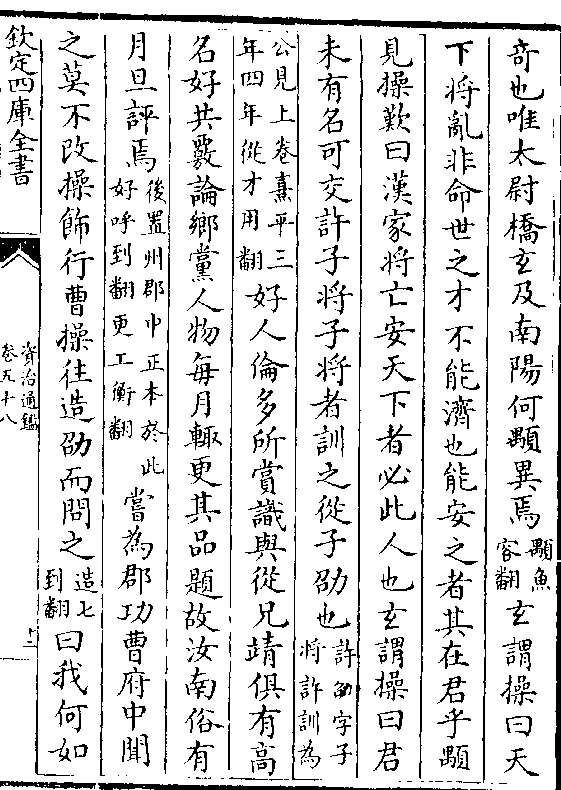 奇也唯太尉橋玄及南陽何顒異焉顒魚容翻玄謂操曰天
下將亂非命世之才不能濟也能安之者其在君乎顒
見操歎曰漢家將亡安天下者必此人也玄謂操曰君
未有名可交許子將子將者訓之從子劭也許劭字子將許訓為
公見上卷熹平三年四年從才用翻好人倫多所賞識與從兄靖俱有高
名好共覈論鄉黨人物每月輒更其品題故汝南俗有
月旦評焉後置州郡中正本於此好呼到翻更工衡翻嘗為郡功曹府中聞
之莫不改操飾行曹操往造劭而問之造七到翻曰我何如
欽定四庫全書
資治通鑑
卷五十八